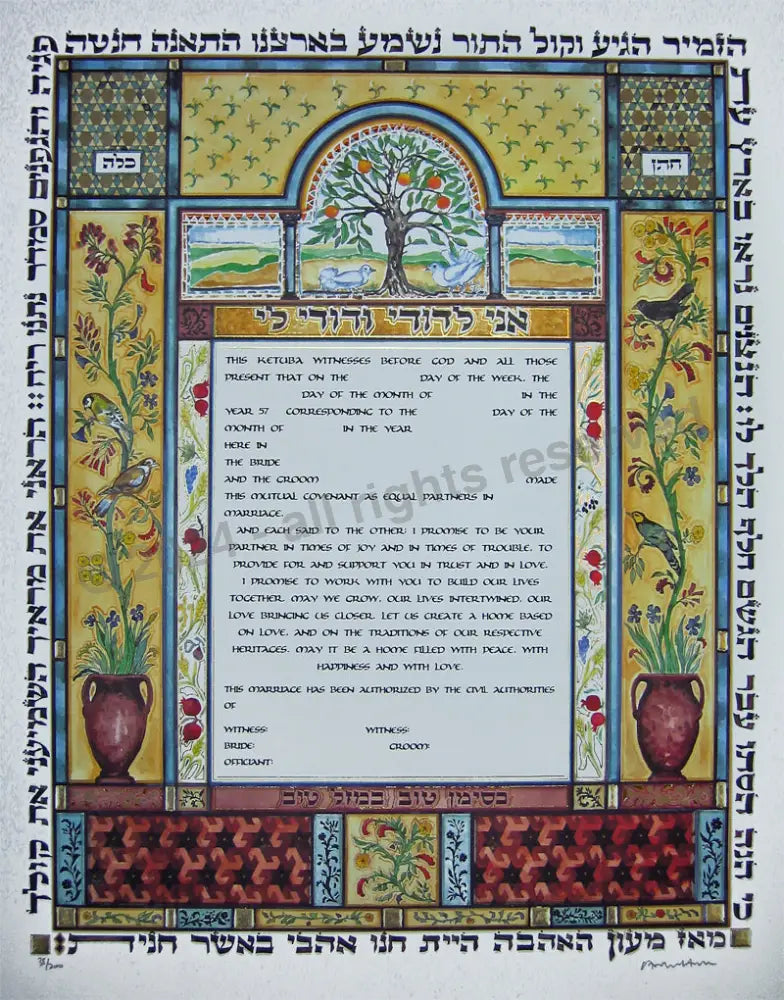 הזמיר הגיע וקול התור נשמע בארצנו התאנה חנטה
פגיה והגפנים סמדר נתנו ריח :: הראני את מראיך השמיעיני את קולך
כי הנה הסתו עבר הגשם חלף הלך לו :: הנצנים נראו בארץ עת
חתן
כלה
אני לדודי ודודי לי
THIS KETUBA WITNESSES BEFORE GOD AND ALL THOSE
PRESENT THAT ON THE DAY OF THE WEEK, THE
DAY OF THE MONTH OF IN THE
YEAR 57 CORRESPONDING TO THE DAY OF THE
MONTH OF IN THE YEAR
HERE IN
THE BRIDE
AND THE GROOM MADE
THIS MUTUAL COVENANT AS EQUAL PARTNERS IN
MARRIAGE.
AND EACH SAID TO THE OTHER: I PROMISE TO BE YOUR
PARTNER IN TIMES OF JOY AND IN TIMES OF TROUBLE, TO
PROVIDE FOR AND SUPPORT YOU IN TRUST AND IN LOVE.
I PROMISE TO WORK WITH YOU TO BUILD OUR LIVES
TOGETHER. MAY WE GROW, OUR LIVES INTERTWINED, OUR
LOVE BRINGING US CLOSER. LET US CREATE A HOME BASED
ON LOVE, AND ON THE TRADITIONS OF OUR RESPECTIVE
HERITAGES. MAY IT BE A HOME FILLED WITH PEACE, WITH
HAPPINESS AND WITH LOVE.
THIS MARRIAGE HAS BEEN AUTHORIZED BY THE CIVIL AUTHORITIES
OF
WITNESS: WITNESS:
BRIDE: GROOM:
OFFICIANT:
בסימן טוב במזל טוב
מאז מעון האהבה היית חנו אהבי באשר חנית::
© 2024 - all rights reserved